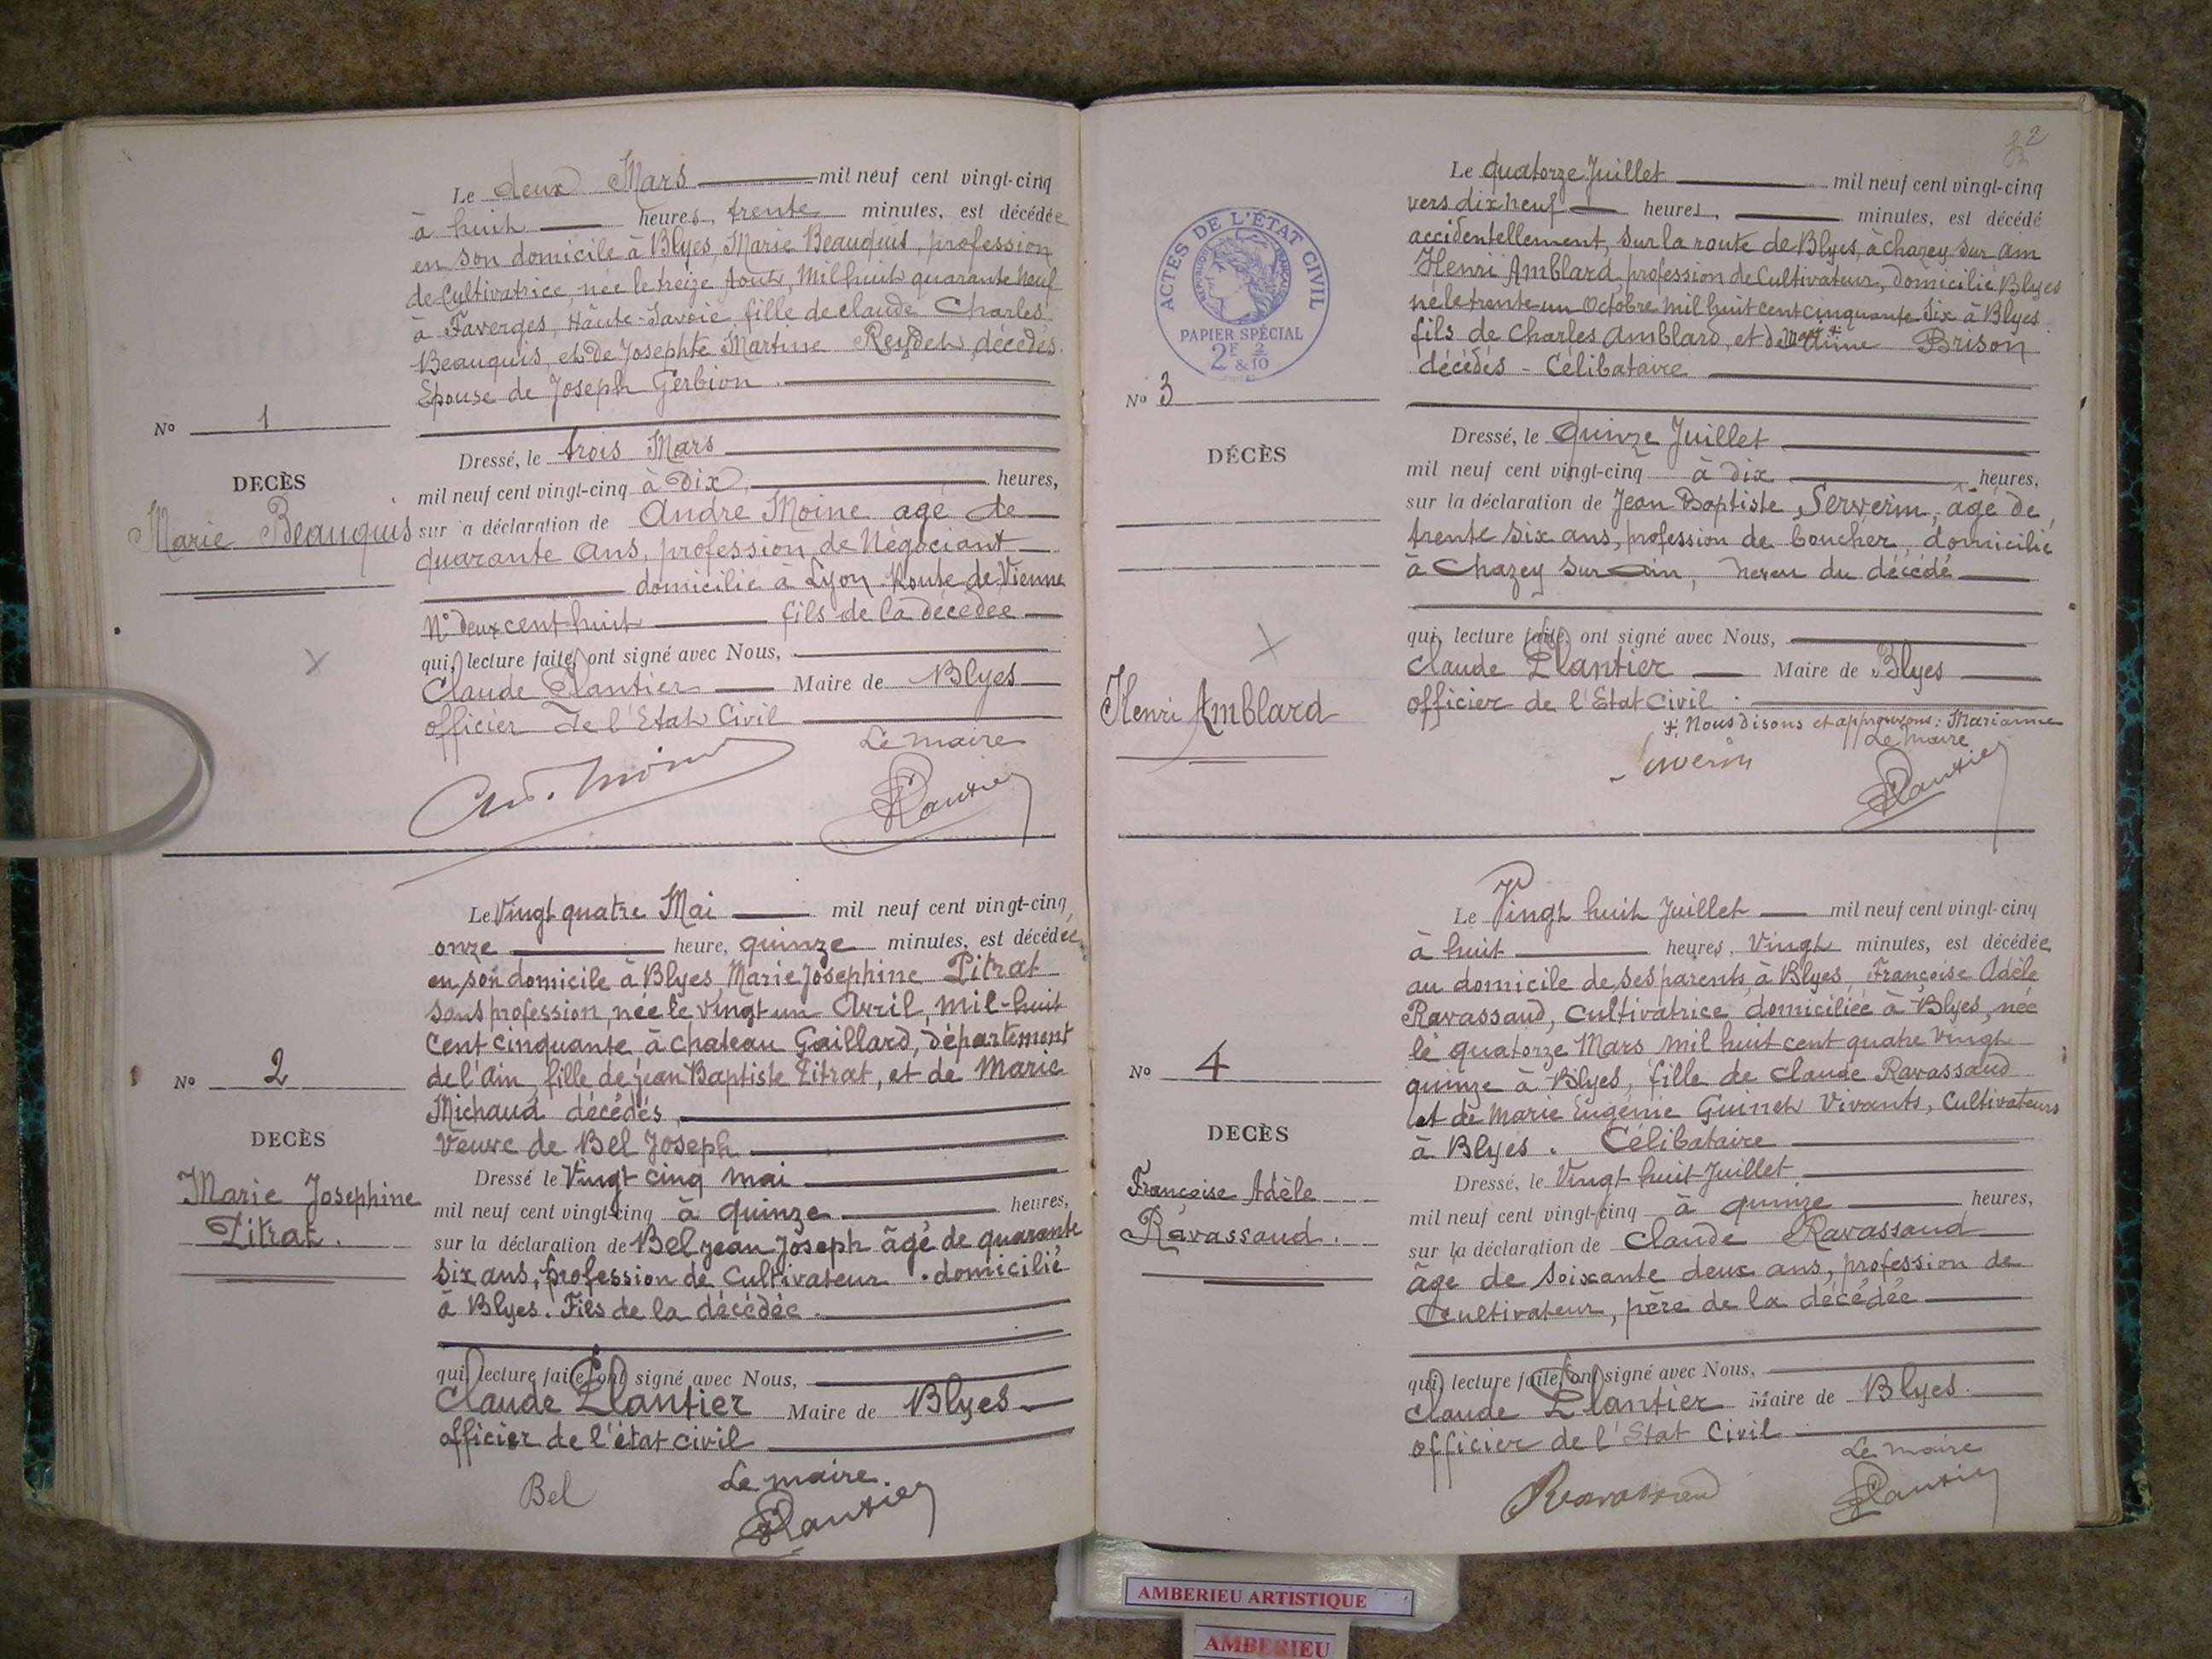 Le deux Mars mil neuf cent vingt-cinq
à huit heures, trente minutes, est décédée
en son domicile à Blyes, Marie Beauquis, profession
de Cultivatrice, née le treize Août, Mil huit quarante neuf
à Faverges, Haute-Savoie fille de claude Charles
Beauquis, et de Josephte Martine décédés.
Epouse de Joseph Gerbion.
No 1
Dressé, le trois Mars
DECÈS
mil neuf cent vingt-cinq à Dix heures,
Marie Beauquis
sur a déclaration de André Moine agé de
quarante ans, profession de Négociant
domicilié à Lyon Route de Vienne
N° Deux cent huit fils de la décédée
qui, lecture faite, ont signé avec Nous,
Claude Plantier Maire de Blyes
officier de l'Etat Civil
Le maire
Plantier
Le Vingt quatre Mai mil neuf cent vingt-cinq,
onze heure, quinze minutes, est décédée
en son domicile à Blyes, Marie Josephine Pitrat
sans profession, née le vingt un Avril, mil-huit
cent cinquante à chateau Gaillard, département
de l'ain, fille de jean Baptiste Pitrat, et de Marie
Michaud décédés,
Veuve de Bel Joseph
No 2
DECÈS
Marie Josephine
Pitrat.
Dressé le Vingt cinq mai
mil neuf cent vingt-cinq à quinze heures,
sur la déclaration de Bel jean Joseph âgé de quarante
six ans, profession de Cultivateur. domicilié
à Blyes. Fils de la décédée.
qui, lecture faite, ont signé avec Nous,
Claude Plantier Maire de Blyes
officier de l'état civil
Bel
Le maire.
Plantier
2
Le quatorze Juillet mil neuf cent vingt-cinq
vers dix neuf heures, minutes, est décédé
accidentellement, sur la route de Blyes, à chazey sur ain
Henri Amblard, profession de Cultivateur, domicilié Blyes
né le trente-un Octobre mil huit cent cinquante six à Blyes
fils de Charles Amblard, et de Brison
décédés - Célibataire
ACTES DE L'ÉTAT CIVIL
RÉPUBLIQUE FRANÇAISE
PAPIER SPÉCIAL
2F & 2/10
No 3
DÉCÈS
Henri Amblard
Dressé, le Quinze Juillet
mil neuf cent vingt-cinq à dix heures,
sur la déclaration de Jean Baptiste Serverin, âgé de
trente six ans, profession de boucher, domicilié
à Chazey sur ain, neveu du décédé
qui, lecture faite, ont signé avec Nous,
Claude Plantier Maire de Blyes
officier de l'Etat Civil.
+. Nous disons et approuvons: Marianne
Le maire
Plantier
Le Vingt huit Juillet mil neuf cent vingt-cinq
à huit heures, Vingt minutes, est décédée
au domicile de ses parents, à Blyes, Françoise Adèle
Ravassaud, Cultivatrice domiciliée à Blyes, née
le quatorze Mars mil huit cent quatre vingt
quinze à Blyes, fille de Claude Ravassaud
et de Marie Eugénie Guinet Vivants, Cultivateurs
à Blyes. Célibataire
No 4
DECÈS
Françoise Adèle
Ravassaud.
Dressé, le Vingt-huit Juillet
mil neuf cent vingt-cinq à quinze heures,
sur la déclaration de Claude Ravassaud
âgé de soixante deux ans, profession de
Cultivateur, père de la décédée
qui, lecture faite, ont signé avec Nous,
Claude Plantier Maire de Blyes.
officier de l'Etat Civil
Le maire
Ravassaud
Plantier
AMBERIEU ARTISTIQUE
AMBERIEU